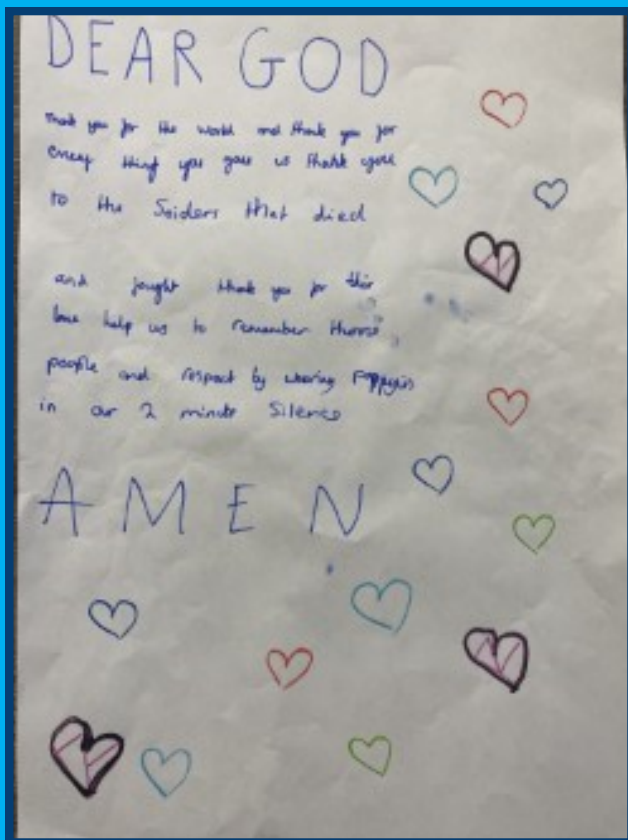 DEAR GOD
Thank you for the world and thank you for
every thing you gave us thank you
to the Soiders that died
and fought thank you for thir
love help us to remember thoose
people and respect by wearing Poppyis
in our 2 minute Silence
AMEN